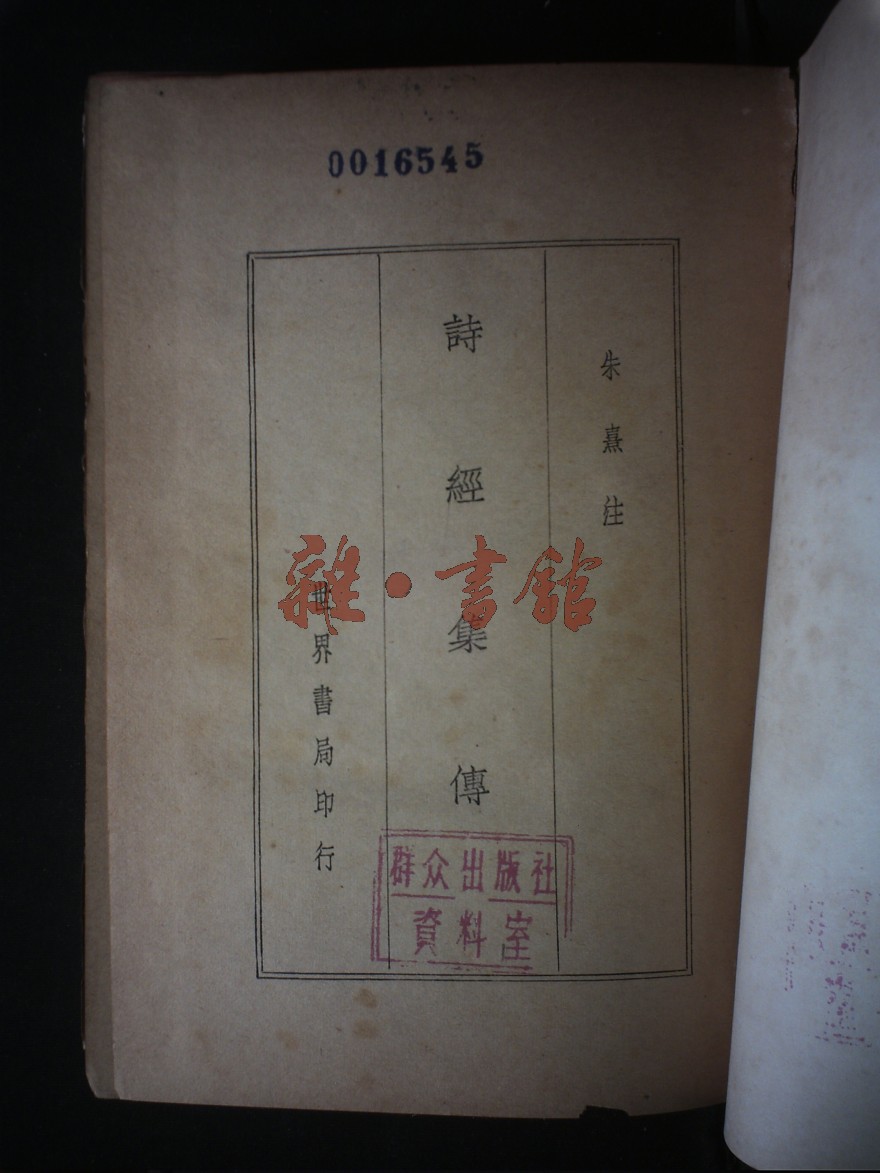 0016545
朱熹注
詩經集傳
世界書局印行
雜·書館
群众出版社
資料室